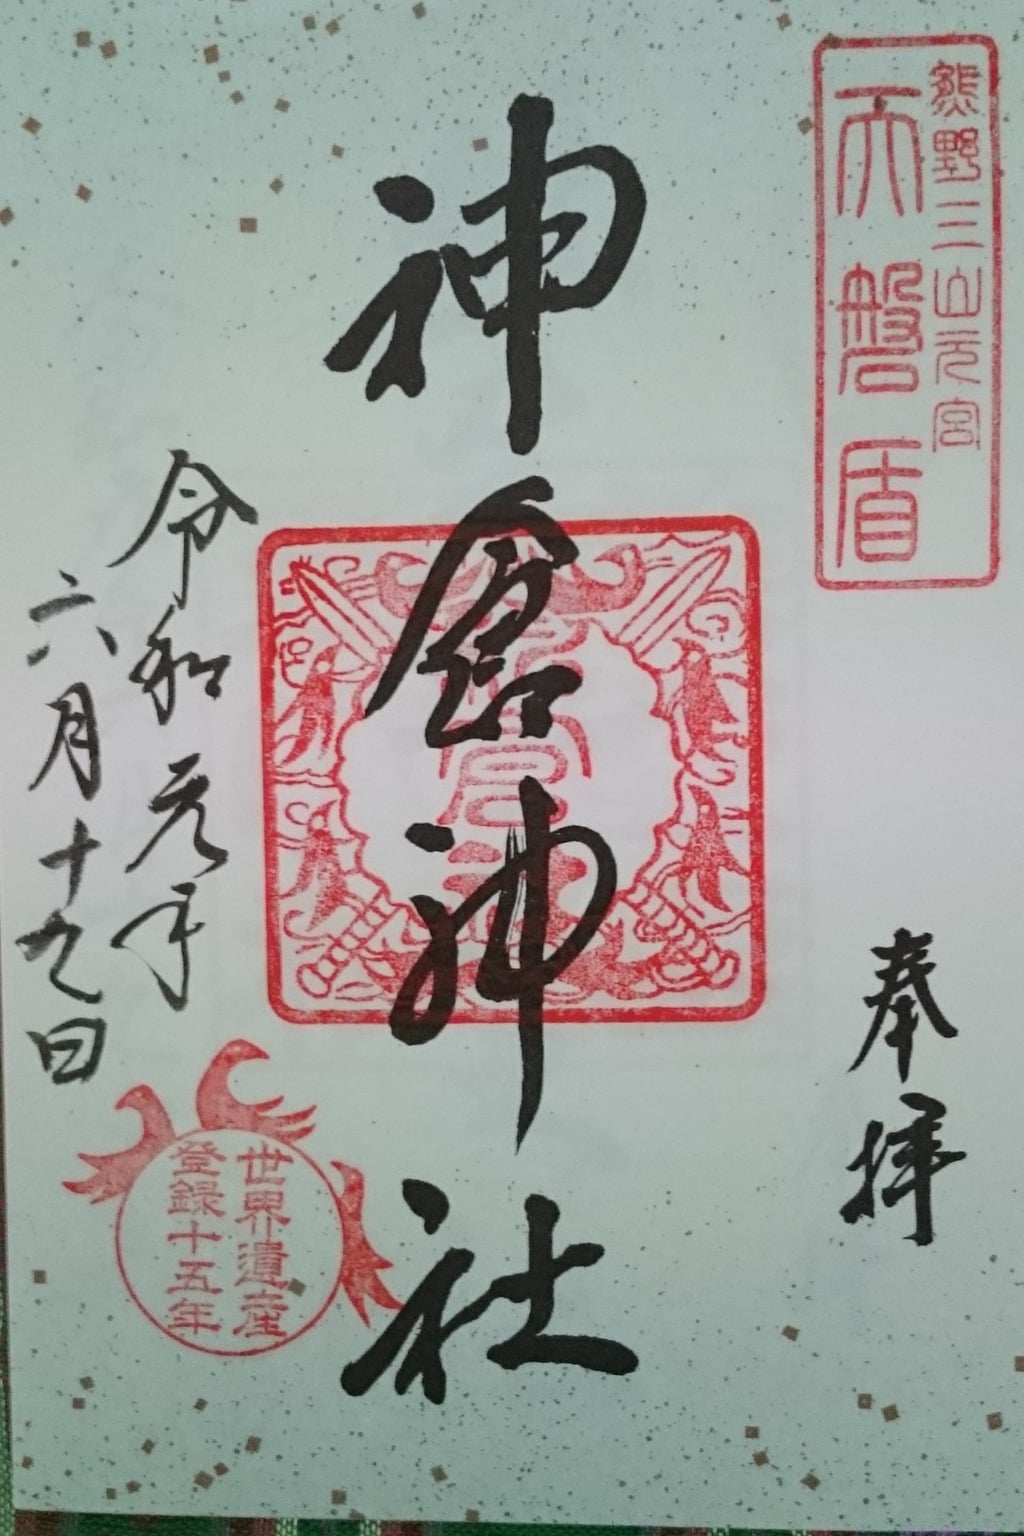 熊野三山元宮
天磐盾
奉拝
神倉神社
令和元年
六月十九日
世界遺産
登録十五年